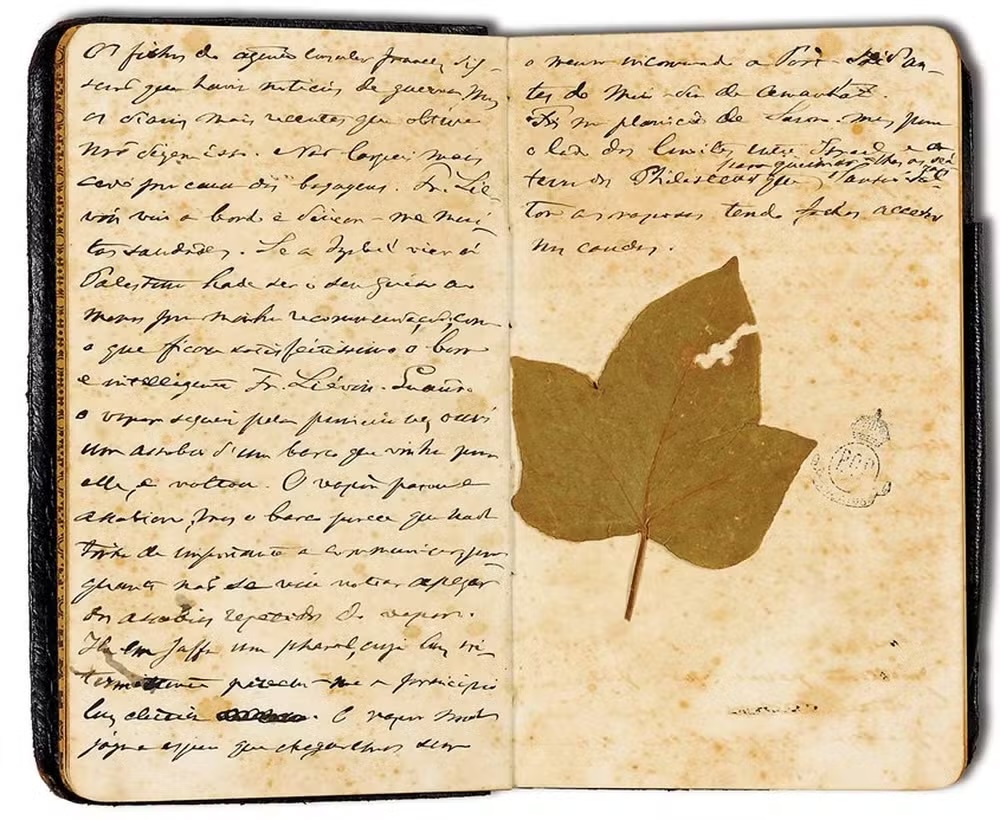 O filho do agente consular francez dis-
se-me que havia noticias de guerra, mas
os diarios mais recentes que obtive
não dizem isso. Não larguei mais
cedo por causa das bagagens. Fr. Lié-
vin veio a bordo e deixou-me mui-
tas saudades. Se a Izabel vier á
Palestina hade ser o seu guia ao
menos por minha recommendação, com
o que ficou satisfeitissimo o bom
e intelligente Fr. Liévin. Quando
o vapor seguia pela primeira vez ouvi
um assobio d'um barco que vinha para
elle, e voltou. O vapor parou e
assobiou, mas o barco parece que nada
tinha de importante a communicar, por
quanto não se viu voltar apezar
dos assobios repetidos do vapor.
Ha em Jaffa um pharol, cuja luz in-
termittente pareceu-me a principio
luz electrica. O vapor
joga e espero que chegaremos sem
o menor incommodo a Port-Said an-
tes do meio-dia de amanhã.
na planicie de Saron, mas para
o lado dos limites entre Israel e a
para queimar-lhes as
terra dos Philisteus que
tou as raposas tendo fachos accesos
nas caudas.
PCP